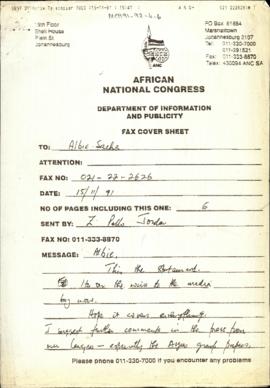 MCH91-92-4-6
10th Floor
Shell House
Plein St
Johannesburg
PO Box 61884
Marshalltown
Johannesburg 2107
Tel: 011-330-7000
Fax: 011-333-8870
ANC
AFRICAN
NATIONAL CONGRESS
DEPARTMENT OF INFORMATION
AND PUBLICITY
FAX COVER SHEET
TO: Albie Sachs
ATTENTION:
FAX NO: 021-22-2626
DATE: 15/11/91
NO OF PAGES INCLUDING THIS ONE: 6
SENT BY: Z Pallo Jordan
FAX NO: 011-333-8870
MESSAGE: Albie,
This the statement.
It's on the wire to the media
by now.
Hope it covers everything.
I expect further comments in the press from
our - especially the Argus group papers.
Please phone 011-330-7000 if you encounter any problems